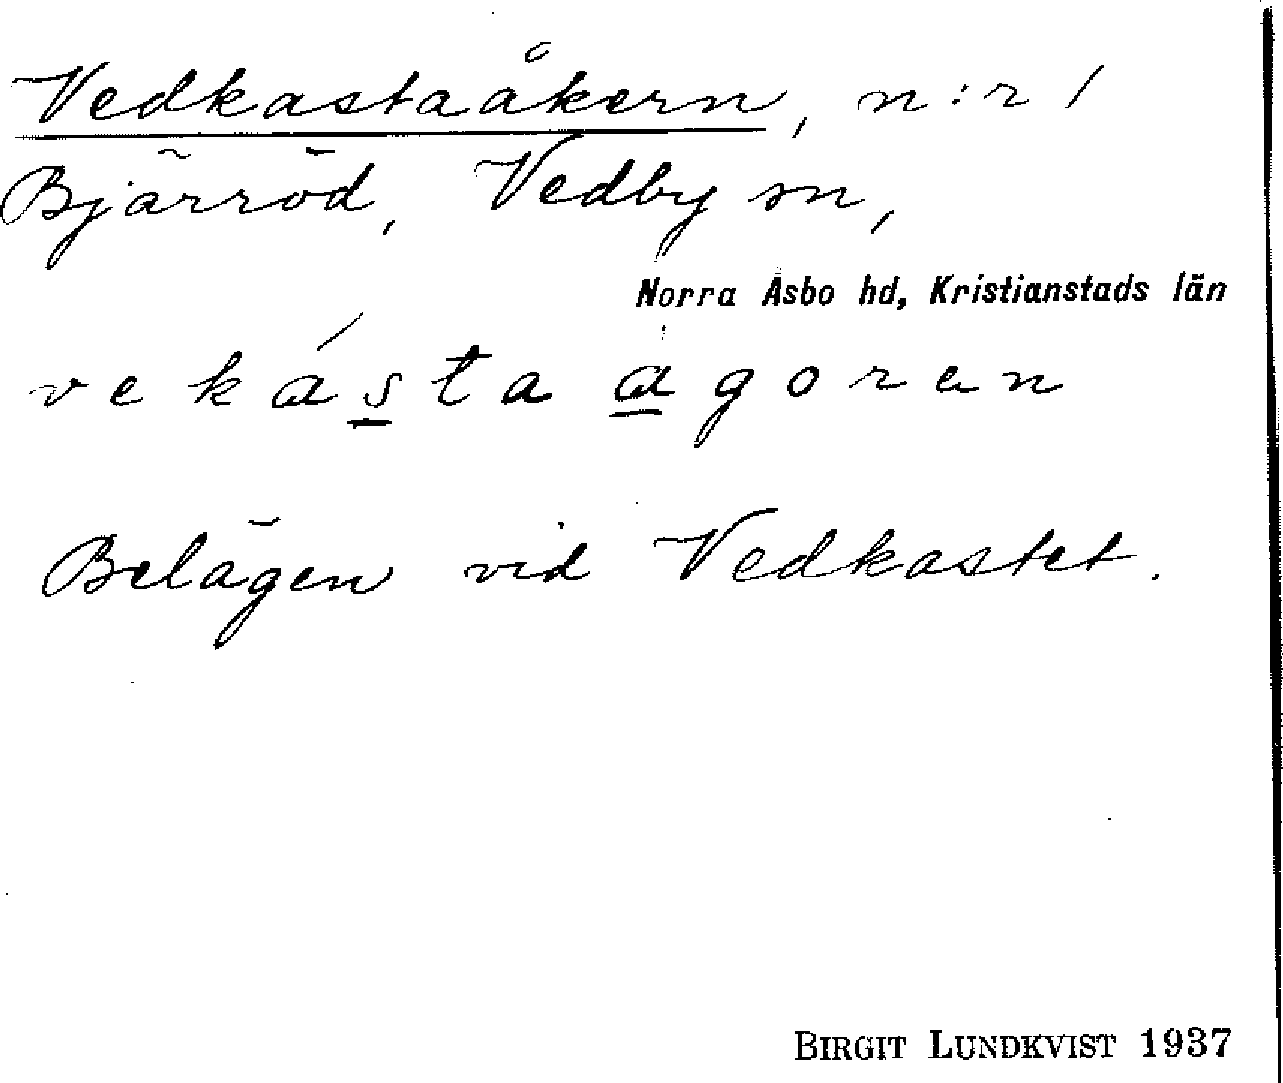 Vedkastaåkern, n:r 1
Bjärröd, Vedby sn,
Norra Åsbo hd, Kristianstads län
vekásta agoren
Belägen vid Vedkastet.
BIRGIT LUNDKVIST 1937